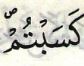 كَسَبْتُمْ